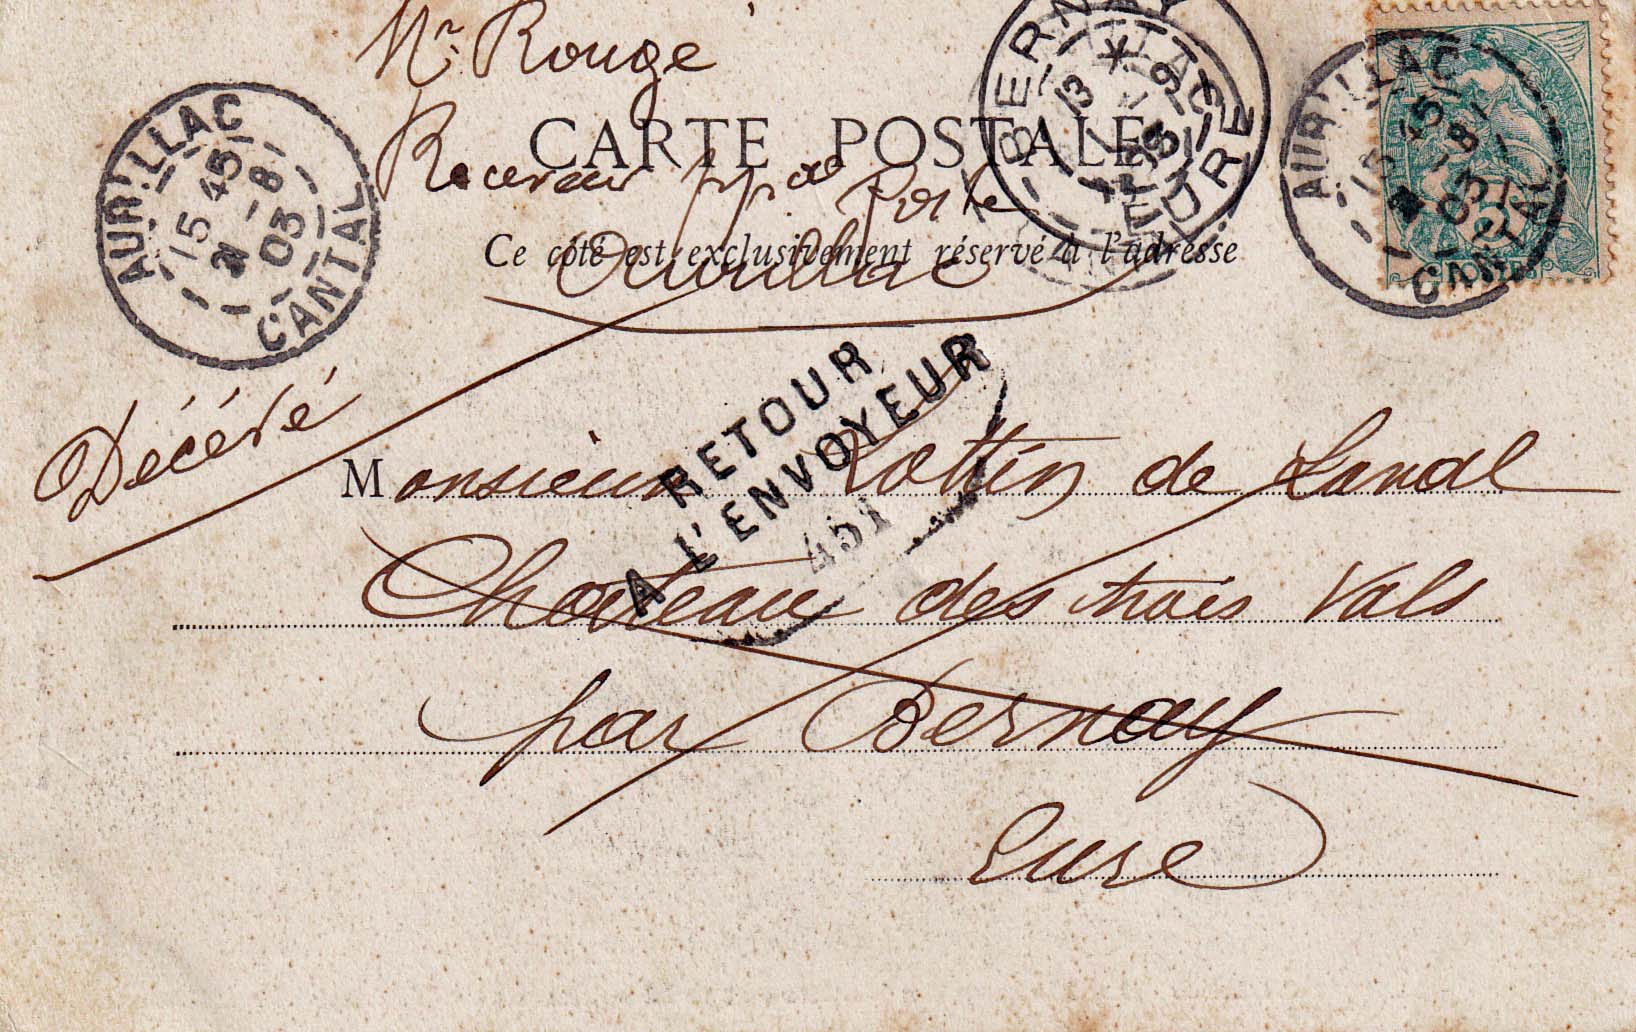 Mr. Rougé
CARTE POSTALE
Receveur ppal Poste
Ce côté est exclusivement réservé à l'adresse
Aurillac
AURILLAC
15 45
21 -8
03
CANTAL
BERNAY
13
EURE
AURILLAC
15 45
21 -8
03
CANTAL
POSTES
RETOUR
A L'ENVOYEUR
451
Décédé
Monsieur Lottin de Laval
Château des trois Vals
par Bernay
Eure